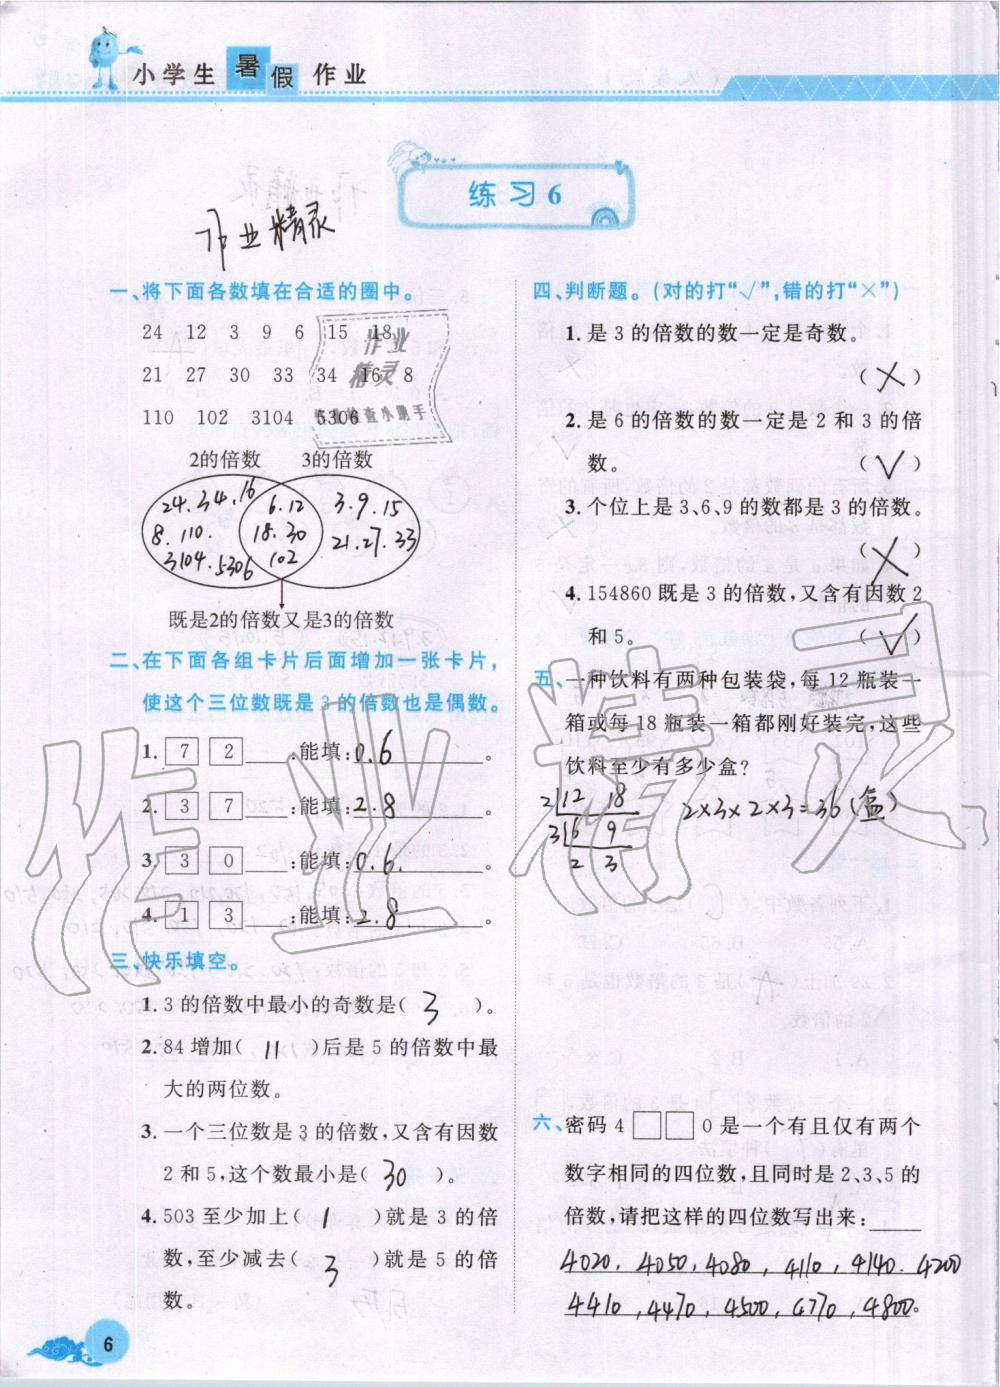 小学生 暑假 作业
练习6
作业精灵
一、将下面各数填在合适的圈中。
24 12 3 9 6 15 18
21 27 30 33 34 16 8
110 102 3104 5306
作业
精灵
2的倍数 3的倍数
24.34.16
8.110.
3104.5306
6.12
18.30
102
3.9.15
21.27.33
既是2的倍数又是3的倍数
二、在下面各组卡片后面增加一张卡片,
使这个三位数既是3的倍数也是偶数。
1. 7 2 ___;能填:0.6。
2. 3 7 ___;能填:2.8。
3. 3 0 ___;能填:0.6.。
4. 1 3 ___;能填:2.8。
三、快乐填空。
1. 3的倍数中最小的奇数是( 3 )。
2. 84增加( 11 )后是5的倍数中最
大的两位数。
3. 一个三位数是3的倍数,又含有因数
2和5,这个数最小是( 30 )。
4. 503至少加上( 1 )就是3的倍
数,至少减去( 3 )就是5的倍
数。
四、判断题。(对的打“√”,错的打“×”)
1. 是3的倍数的数一定是奇数。
(×)
2. 是6的倍数的数一定是2和3的倍
数。 (√)
3. 个位上是3、6、9的数都是3的倍数。
(×)
4. 154860既是3的倍数,又含有因数2
和5。 (√)
五、一种饮料有两种包装袋,每12瓶装一
箱或每18瓶装一箱都刚好装完,这些
饮料至少有多少盒?
2 12 18
3 6 9
2 3
2×3×2×3=36(盒)
六、密码4□□0是一个有且仅有两个
数字相同的四位数,且同时是2、3、5的
倍数,请把这样的四位数写出来:____
4020, 4050, 4080, 4110, 4140. 4200
4410, 4470, 4500, 4770, 4800。
作业精灵
6